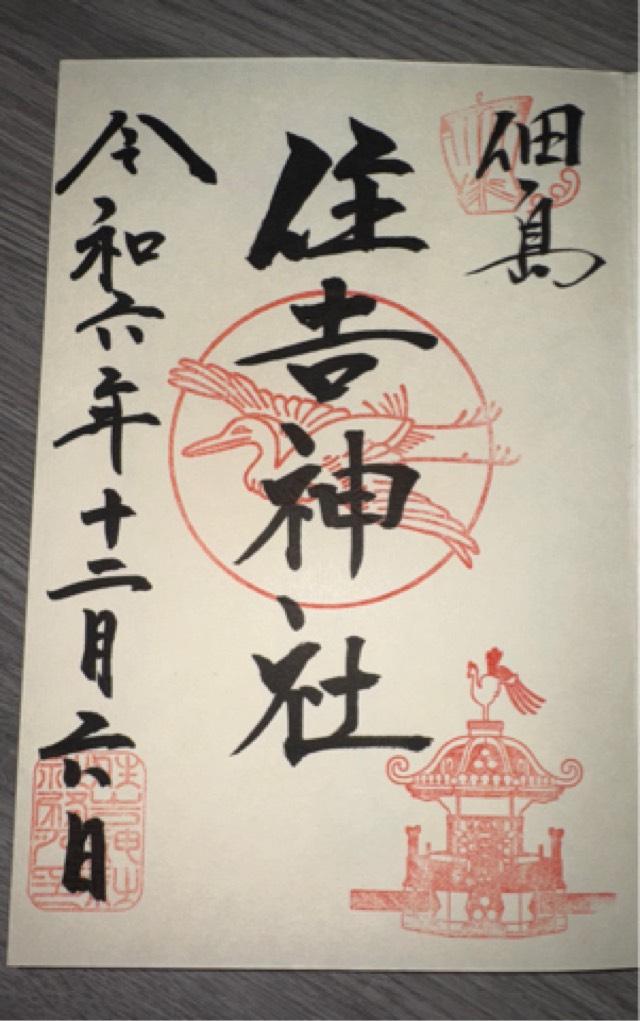 佃島
住吉神社
令和六年十二月六日